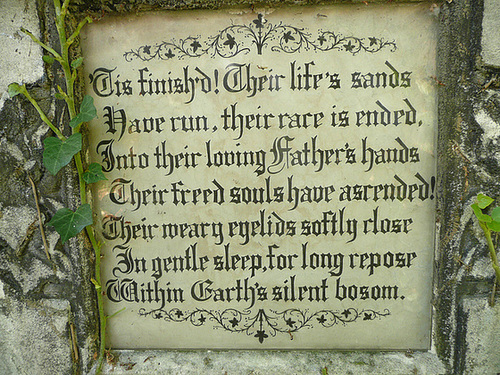 'Tis finish'd! Their life's sands
Have run, their race is ended,
Into their loving Father's hands
Their freed souls have ascended!
Their weary eyelids softly close
In gentle sleep, for long repose
Within Earth's silent bosom.